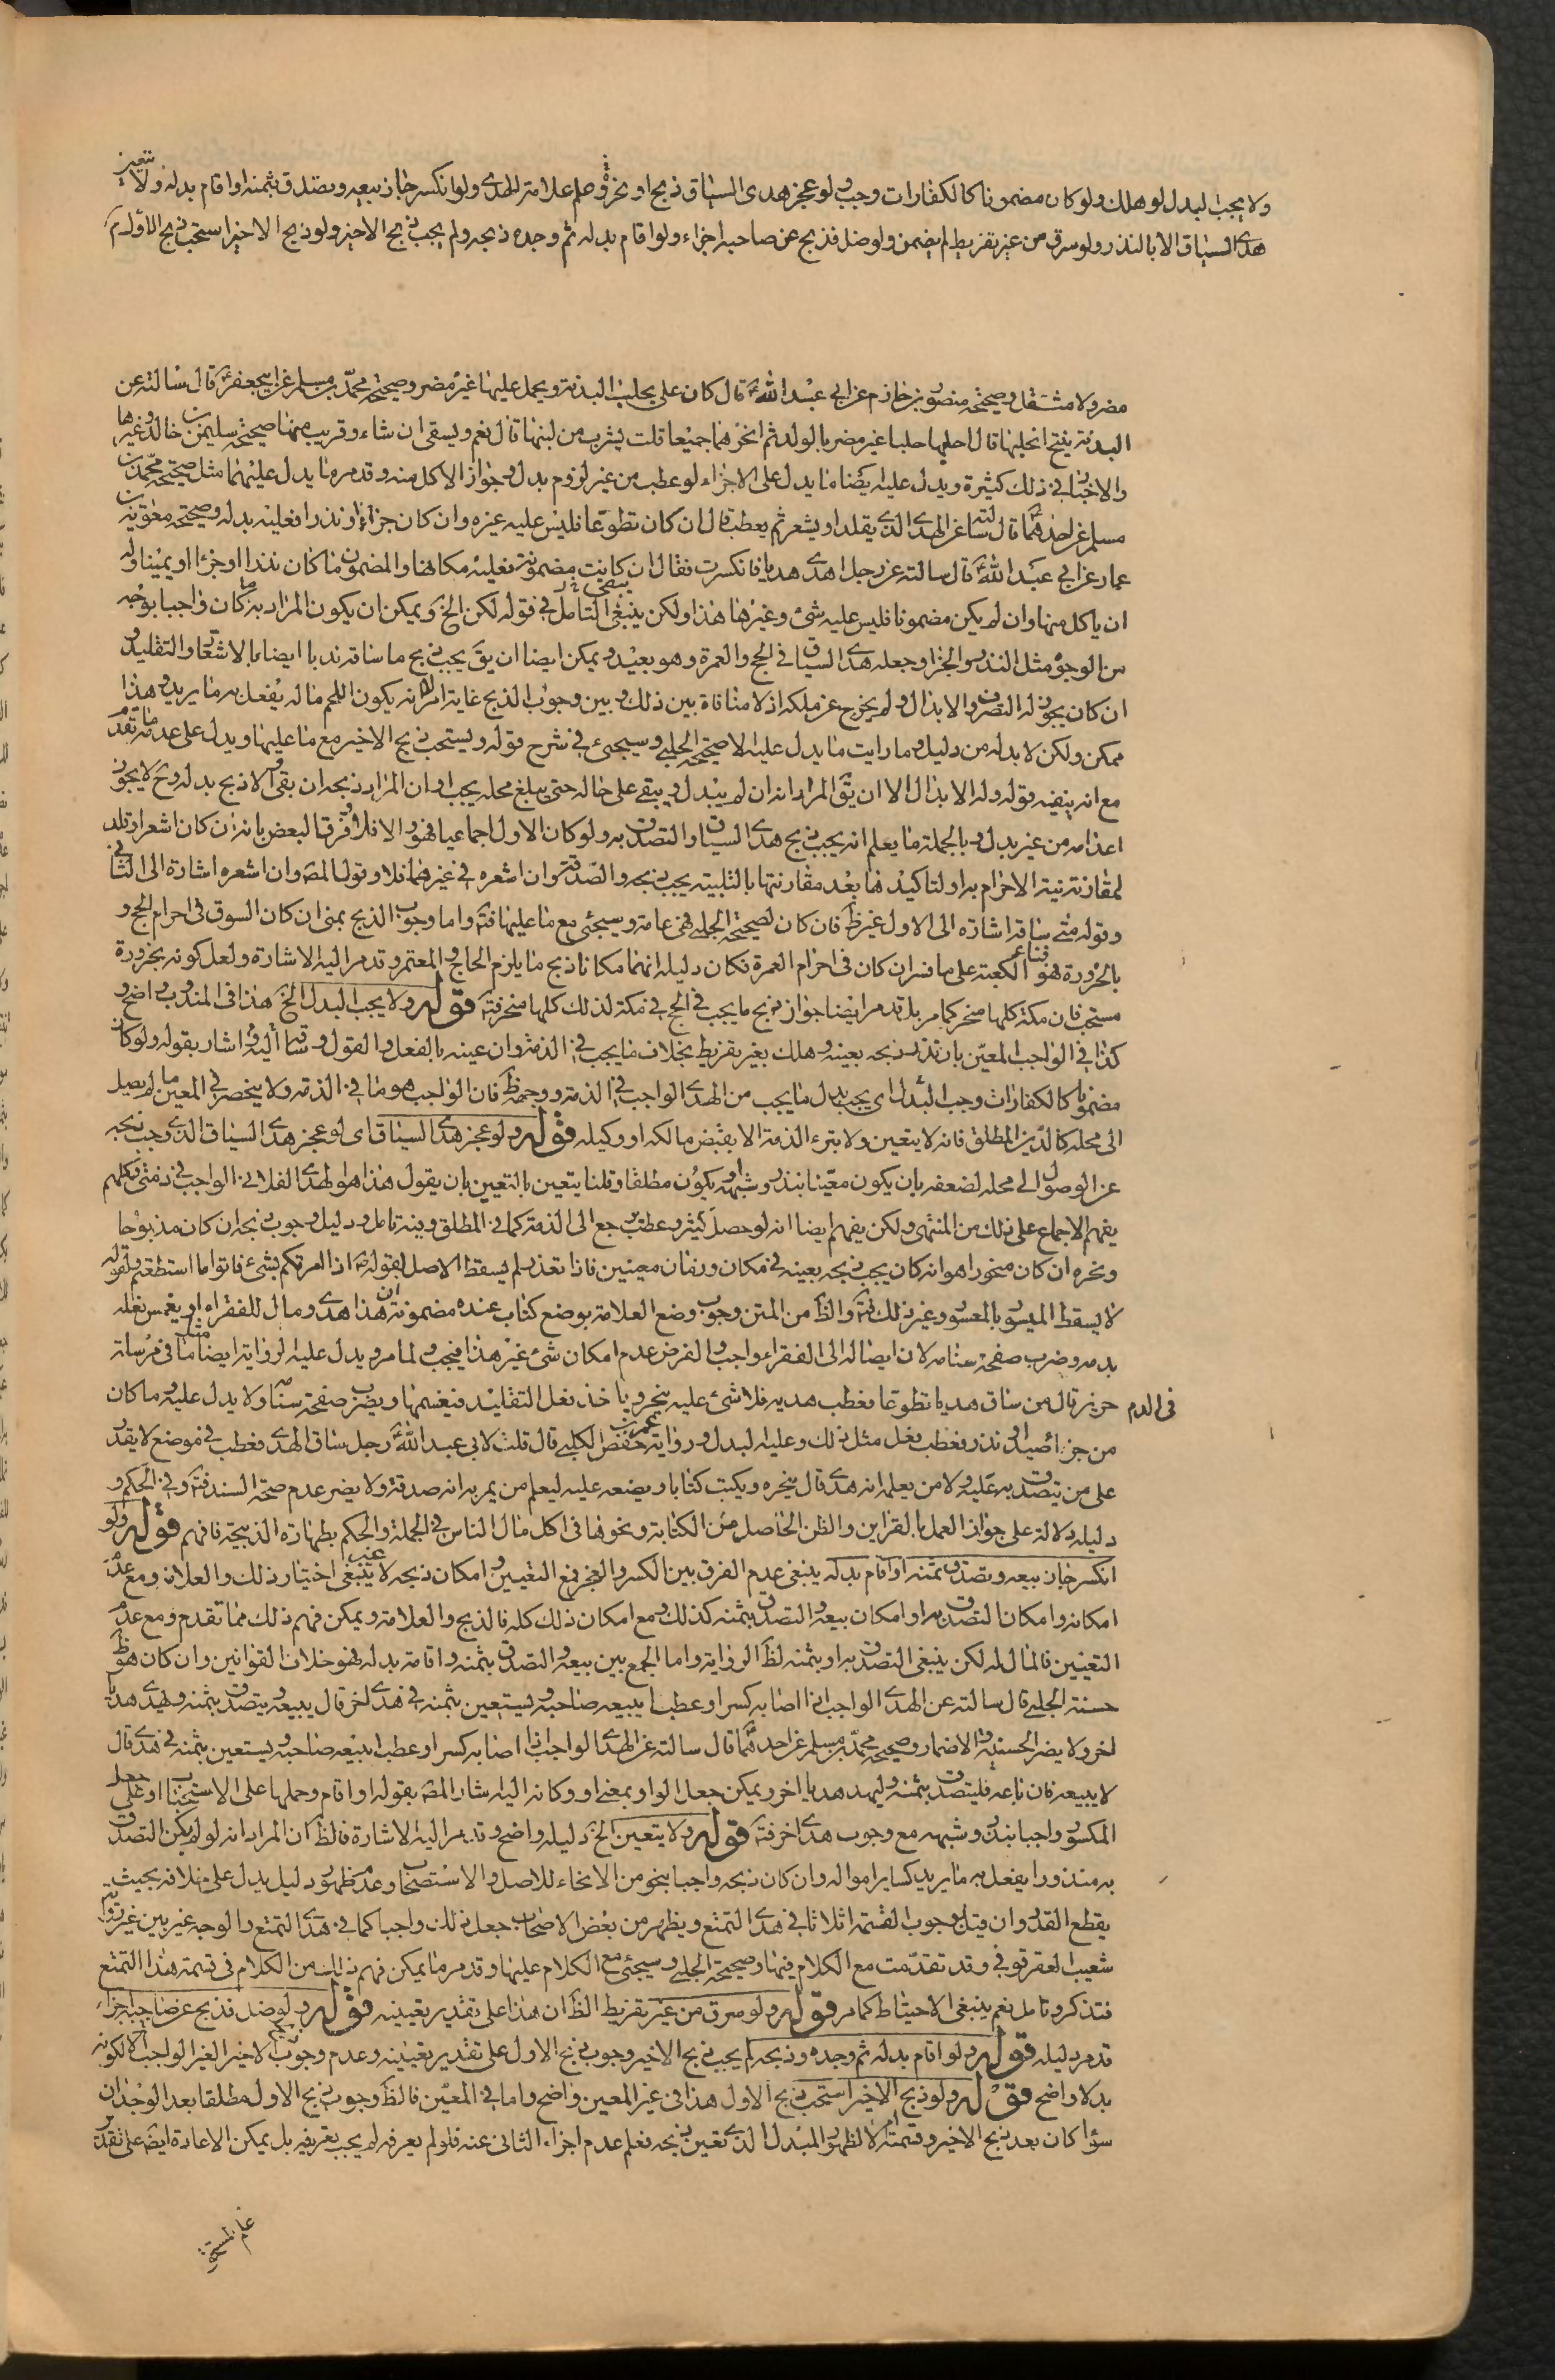 ولا يجب البدل لو هلك ولو كان مضمونا كالكفارات وجب ولو عجز هدى السياق ذبح او نحر وعلم علامة الهدى ولو انكسر جاز بيعه ويتصدق بثمنه او اقام بدله ولا يتعين
هدى السياق الا بالنذر ولو سرق من غير تفريط لم يضمن ولو ضل فذبح عن صاحبه اجزاء ولو اقام بدله ثم وجده ذبحه ولم يجب ذبح الاخير ولو ذبح الاخير استحب ذبح الاول
مضر ولا مثقل وصحيحة منصور بن حازم عن ابي عبد الله ع قال كان على يحلب البدنة ويحمل عليها غير مضر وصحيحة محمد بن مسلم عن ابي جعفر ع قال سالته عن
البدنة ينتج انحلبها قال احلبها حلبا غير مضر بالولد ثم انحرهما جميعا قلت يشرب من لبنها قال نعم ويسقى ان شاء وقريب منها صحيحة سليمن بن خالد وغيرها
والاخبار في ذلك كثيرة ويدل عليه ايضا ما يدل على الاجزاء لو عطب من غير لزوم بدل وجواز الاكل منه وقد مر ما يدل عليهما مثل صحيحة محمد بن
مسلم عن احدهما ع قال سالته عن الهدى الذى يقلد او يشعر ثم يعطب قال ان كان تطوعا فليس عليه غيره وان كان جزاء او نذرا فعليه بدله وصحيحة معوية بن
عمار عن ابي عبد الله ع قال سالته عن رجل اهدى هديا فانكسرت فقال ان كانت مضمونة فعليه مكانها والمضمون ما كان نذرا او جزءا او يمينا وله
ان ياكل منها وان لم يكن مضمونا فليس عليه شئ وغيرها هذا ولكن ينبغي التامل في قوله لكن الخ ويمكن ان يكون المراد به ما كان واجبا بوجه
من الوجوه مثل النذر والجزاء وجعله هدى السياق في الحج والعمرة وهو بعيد ويمكن ايضا ان يق يجب ذبح ما ساقه ندبا ايضا بالاشعار والتقليد و
ان كان يجوز له التصرف والابدال ولم يخرج عن ملكه اذ لا منافاة بين ذلك وبين وجوب الذبح غاية الامر انه يكون اللحم ماله يفعل به ما يريد وهذا
ممكن ولكن لا بد له من دليل وما رايت ما يدل عليه الا صحيحة الحلبي وسيجيء في شرح قوله ويستحب ذبح الاخير مع ما عليها ويدل على عدمه ما تقدم
مع انه ينفيه قوله وله الابدال الا ان يق المراد انه ان لم يبدل ويبقى على حاله حتى يبلغ محله يجب او ان المراد ذبحه ان بقى والا ذبح بدله وح لا يجوز
اعدامه من غير بدل وبالجملة ما يعلم انه يجب ذبح هدى السياق او التصدق به ولو كان الاول اجماعيا فهو والا فلا وفرق البعض بانه ان كان اشعر او قلد
لمقارنة نية الاحرام به او لتاكيدها بعد مقارنتها بالتلبية يجب ذبحه والصدقة وان اشعره في غيرهما فلا وقول المصه وان اشعره اشارة الى الثاني
وقوله متى ساقه اشارة الى الاول غير ظ فان كان لصحيحة الحلبي فهي عامة وسيجئ مع ما عليها فت واما وجوب الذبح بمنى ان كان السوق في احرام الحج و
بالحزورة هو فناء الكعبة على ما فسر ان كان في احرام العمرة فكان دليله انهما مكانا ذبح ما يلزم الحاج والمعتمر وقد مر اليه الاشارة ولعل كونه بحزورة
مستحب فان مكة كلها منحر كما مر بل قد مر ايضا جواز ذبح ما يجب في الحج في مكة لذلك كلها منحر فت قوله ولا يجب البدل الخ هذا في المندوب واضح و
كذا في الواجب المعين بان نذر ذبحه بعينه وهلك بغير تفريط بخلاف ما يجب في الذمة وان عينه بالفعل والقول وساقه اليه واشار بقوله ولو كان
مضمونا كالكفارات وجب البدل اى يجب بدل ما يجب من الهدى الواجب في الذمة ووجهه ظ فان الواجب هو ما في الذمة ولا ينحصر في المعين ما لم يصل
الى محله كالدين المطلق فانه لا يتعين ولا يترء الذمة الا بقبض مالكه او وكيله قوله ولو عجز هدى السياق اى لو عجز هدى السياق الذى وجب ذبحه
عن الوصول الى محله لضعفه بان يكون معينا بنذر وشبهه او يكون مطلقا وقلنا يتعين بالتعيين بان يقول هذا هو الهدى الفلاني الواجب في ذمتى وكلهم
يفهم الاجماع على ذلك من المنتهى ولكن يفهم ايضا انه لو حصل كسر وعطب رجع الى الذمة كما في المطلق وفيه تامل ودليل وجوب ذبحه ان كان مذبوحا
ونحره ان كان منحورا هو انه كان يجب ذبحه بعينه في مكان وزمان معينين فاذا تعذر لم يسقط الاصل لقوله ص اذا امرتكم بشئ فاتوا ما استطعتم ولقوله
لا يسقط الميسور بالمعسور وغير ذلك فت والظ من المتن وجوب وضع العلامة بوضع كتاب عنده مضمونة ان هذا هدى ومال للفقراء او يغمس نعله
بدمه وضرب صفحة سنامه لان ايصاله الى الفقراء واجب والفرض عدم امكان شئ غير هذا فيجب ولما مر ويدل عليه الرواية ايضا مثل ما في مرسلة
حريز قال من ساق هديا تطوعا فعطب هديه فلا شئ عليه ينحره وياخذ نعل التقليد فيغمسها في الدم ويضرب صفحة سنامه ولا بدل عليه وما كان
من جزاء صيد او نذر فعطب فعل مثل ذلك وعليه البدل ورواية عمر بن حفص الكلبي قال قلت لابي عبد الله ع رجل ساق الهدى فعطب في موضع لا يقدر
على من يتصدق به عليه ولا من يعلمه انه هدى قال ينحره ويكتب كتابا ويضعه عليه ليعلم من يمر به انه صدقة ولا يضر عدم صحة السند فت وفي الحكم و
دليله دلالة على جواز العمل بالقراين والظن الحاصل من الكتابة ونحوها في اكل مال الناس في الجملة والحكم بطهارة الذبيحة فافهم قوله ولو
انكسر جاز بيعه ويتصدق بثمنه او اقام بدله ينبغي عدم الفرق بين الكسر والعجز فمع التعيين وامكان ذبحه لا ينبغي اختيار ذلك والعلامة ومع عدم
امكانه وامكان التصدق به او امكان بيعه والتصدق بثمنه كذلك ومع امكان ذلك كله فالذبح والعلامة ويمكن فهم ذلك مما تقدم ومع عدم
التعيين فالمال له لكن ينبغي التصدق به او بثمنه لظ الرواية واما الجمع بين بيعه والتصدق بثمنه واقامة بدله فهو خلاف القوانين وان كان هو ظ
حسنة الحلبي قال سالته عن الهدى الواجب اذا اصابه كسر او عطب ايبيعه صاحبه ويستعين بثمنه في هدى اخر قال يبيعه ويتصدق بثمنه ويهدى هديا
اخر ولا يضر الحسنة والاضمار وصحيحة محمد بن مسلم عن احدهما ع قال سالته عن الهدى الواجب اذا اصابه كسر او عطب ايبيعه صاحبه ويستعين بثمنه في هدى قال
لا يبيعه فان باعه فليتصدق بثمنه وليهد هديا اخر ويمكن جعل الواو بمعنى او وكانه اليه اشار المصه بقوله او اقام وحملها على الاستحباب او على جعل
المكسور واجبا بنذر وشبهه مع وجوب هدى اخر فت قوله ولا يتعين الخ دليله واضح وقد مر اليه الاشارة فالظ ان المراد انه لو لم يكن التصدق
به منذورا يفعل به ما يريد كساير امواله وان كان ذبحه واجبا بنحو من الانحاء للاصل والاستصحاب وعدم ظهور دليل يدل على خلافه بحيث
يقطع القدر وان قيل بوجوب القسمة اثلاثا في هدى التمتع ويظهر من بعض الاصحاب جعل ذلك واجبا كما في هدى التمتع والوجه غير بين غير رواية
شعيب العقرقوفي وقد تقدمت مع الكلام فيها وصحيحة الحلبي وسيجئ مع الكلام عليها وقد مر ما يمكن فهم ذلك من الكلام في قسمة هدى التمتع
فتذكر وتامل نعم ينبغي الاحتياط كما مر قوله ولو سرق من غير تفريط الظ ان هذا على تقدير تعيينه قوله ولو ضل فذبح عن صاحبه اجزاء
قد مر دليله قوله ولو اقام بدله ثم وجده وذبحه لم يجب ذبح الاخير وجوب ذبح الاول على تقدير تعيينه وعدم وجوب ذبح الاخير الغير الواجب الا لكونه
بدلا واضح قوله ولو ذبح الاخير استحب ذبح الاول هذا في غير المعين واضح واما في المعين فالظ وجوب ذبح الاول مطلقا بعد الوجدان
سواء كان بعد ذبح الاخير وقسمته ام لا لظهور المبدل الذى تعين ذبحه فعلم عدم اجزاء الثاني عنه فلو لم يعرفه لم يجب تعريفه بل يمكن الاعادة ايضا على تقدير